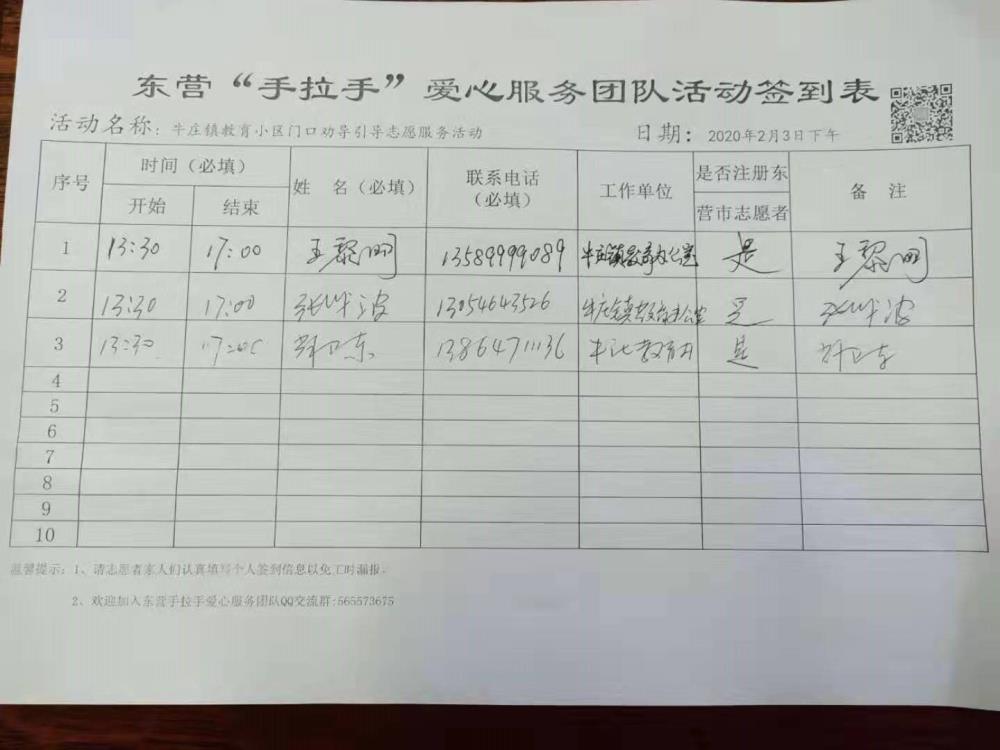 东营“手拉手”爱心服务团队活动签到表
活动名称：牛庄镇教育小区门口劝导引导志愿服务活动 日期：2020年2月3日下午
序号 时间（必填） 姓 名（必填） 联系电话（必填） 工作单位 是否注册东营市志愿者 备 注
开始 结束
1 13:30 17:00 王黎明 13589999089 牛庄镇教育办公室 是 王黎明
2 13:30 17:00 张 波 13054643526 牛庄镇教育办公室 是 张 波
3 13:30 17:00 东 13864711136 牛 教育 是
4
5
6
7
8
9
10
温馨提示：1、请志愿者家人们认真填写个人签到信息以免工时漏报。
2、欢迎加入东营手拉手爱心服务团队QQ交流群:565573675